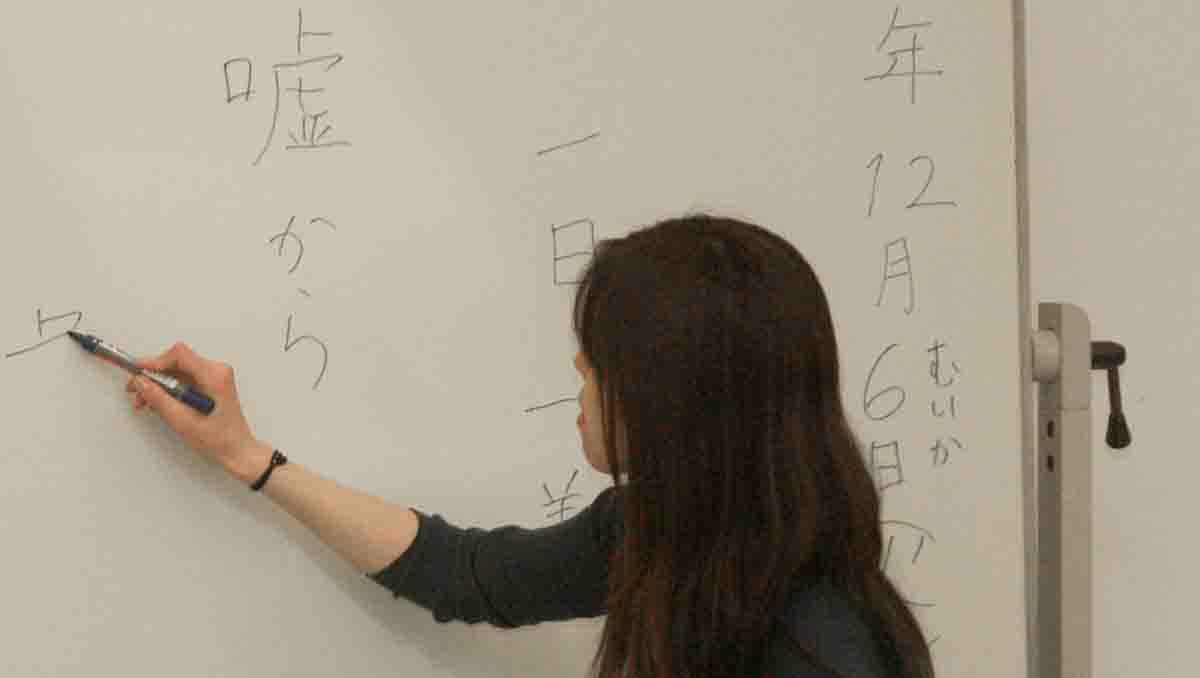 年12月6日
むいか
一日一
嘘から